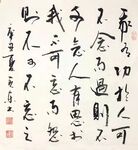 我有功於人不可
念而過則不可
不念人有恩於
我不可忘而怨
則不可不忘